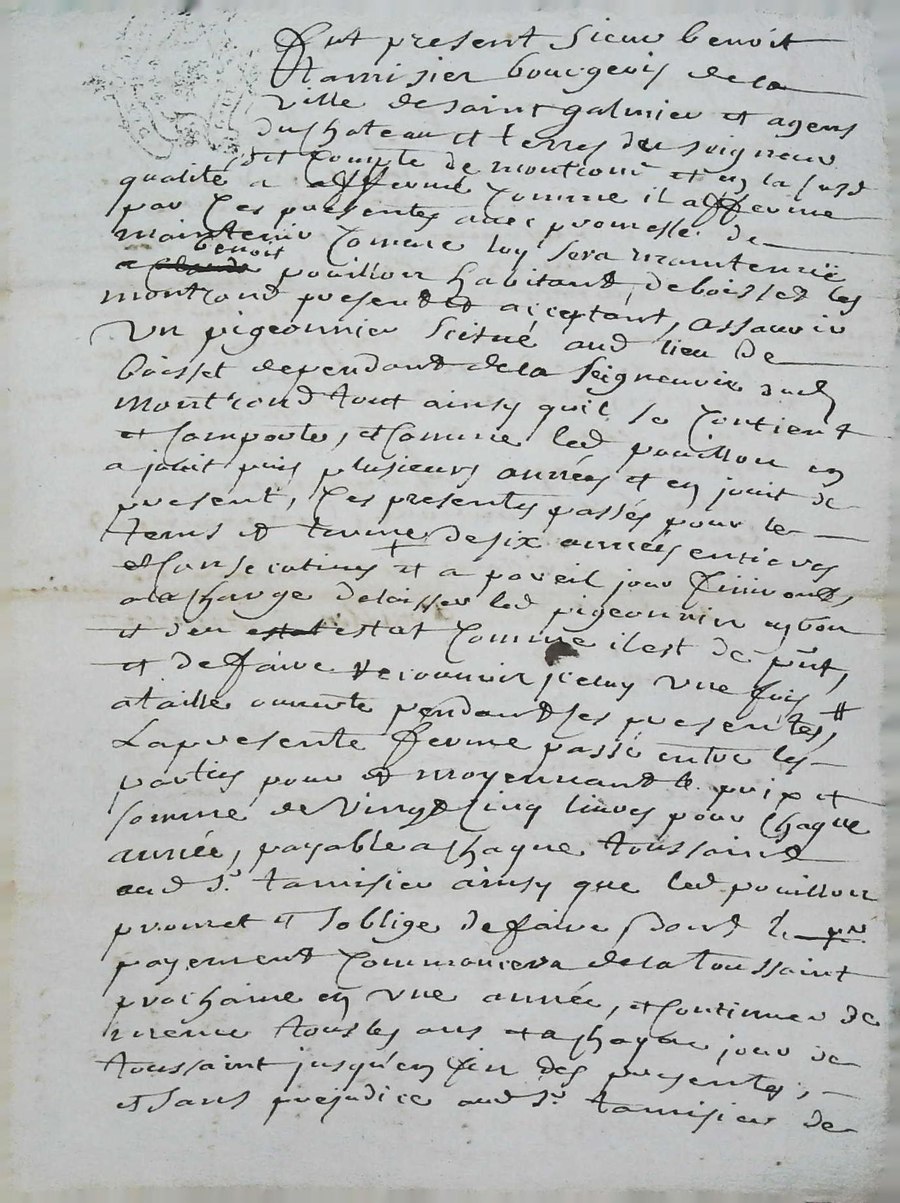 fut present Sieur benoit
tamisier bourgeois de la
ville de saint galmier et agens
du chateau et terres du seigneur
dit Comte de montrond et en la susd
qualité a afferme Comme il afferme
par Ces presentes avec promesse de
maintenir Comme luy sera maintenüe
benoit
a Claude pouillon habitant de boisset les
montrond present et acceptant, assavoir
Un pigeonnier scitué aud lieu de
boisset dependant de la seigneurie dud
montrond tout ainsy quil se Contient
et Comporte, et Comme led pouillon en
a jouit puis plusieurs années et en jouit de
present, Ces presentes passés pour le
tems et terme de six années entieres
et Consecutives + et a pareil jour finiront,
a la Charge de laisser led pigeonnier en bon
et deu estat estat Comme il est de pnt,
et de faire recouvrir jceluy Une fois
a taille ouverte pendant les presentes, #
La presente ferme passé entre les
parties pour et moyennant le prix et
somme de Vingt Cinq livres pour Chaque
année, payable a Chaque toussaint
aud sr. tamisier ainsy que led pouillon
promet et s'oblige de faire, dont le pr
payement Commancera de la toussaint
prochaine en une année, et Continuer de
meme tous les ans et a Chaque jour de
toussaint jusqu'en fin des presentes,
et sans prejudice aud sr. tamisier de